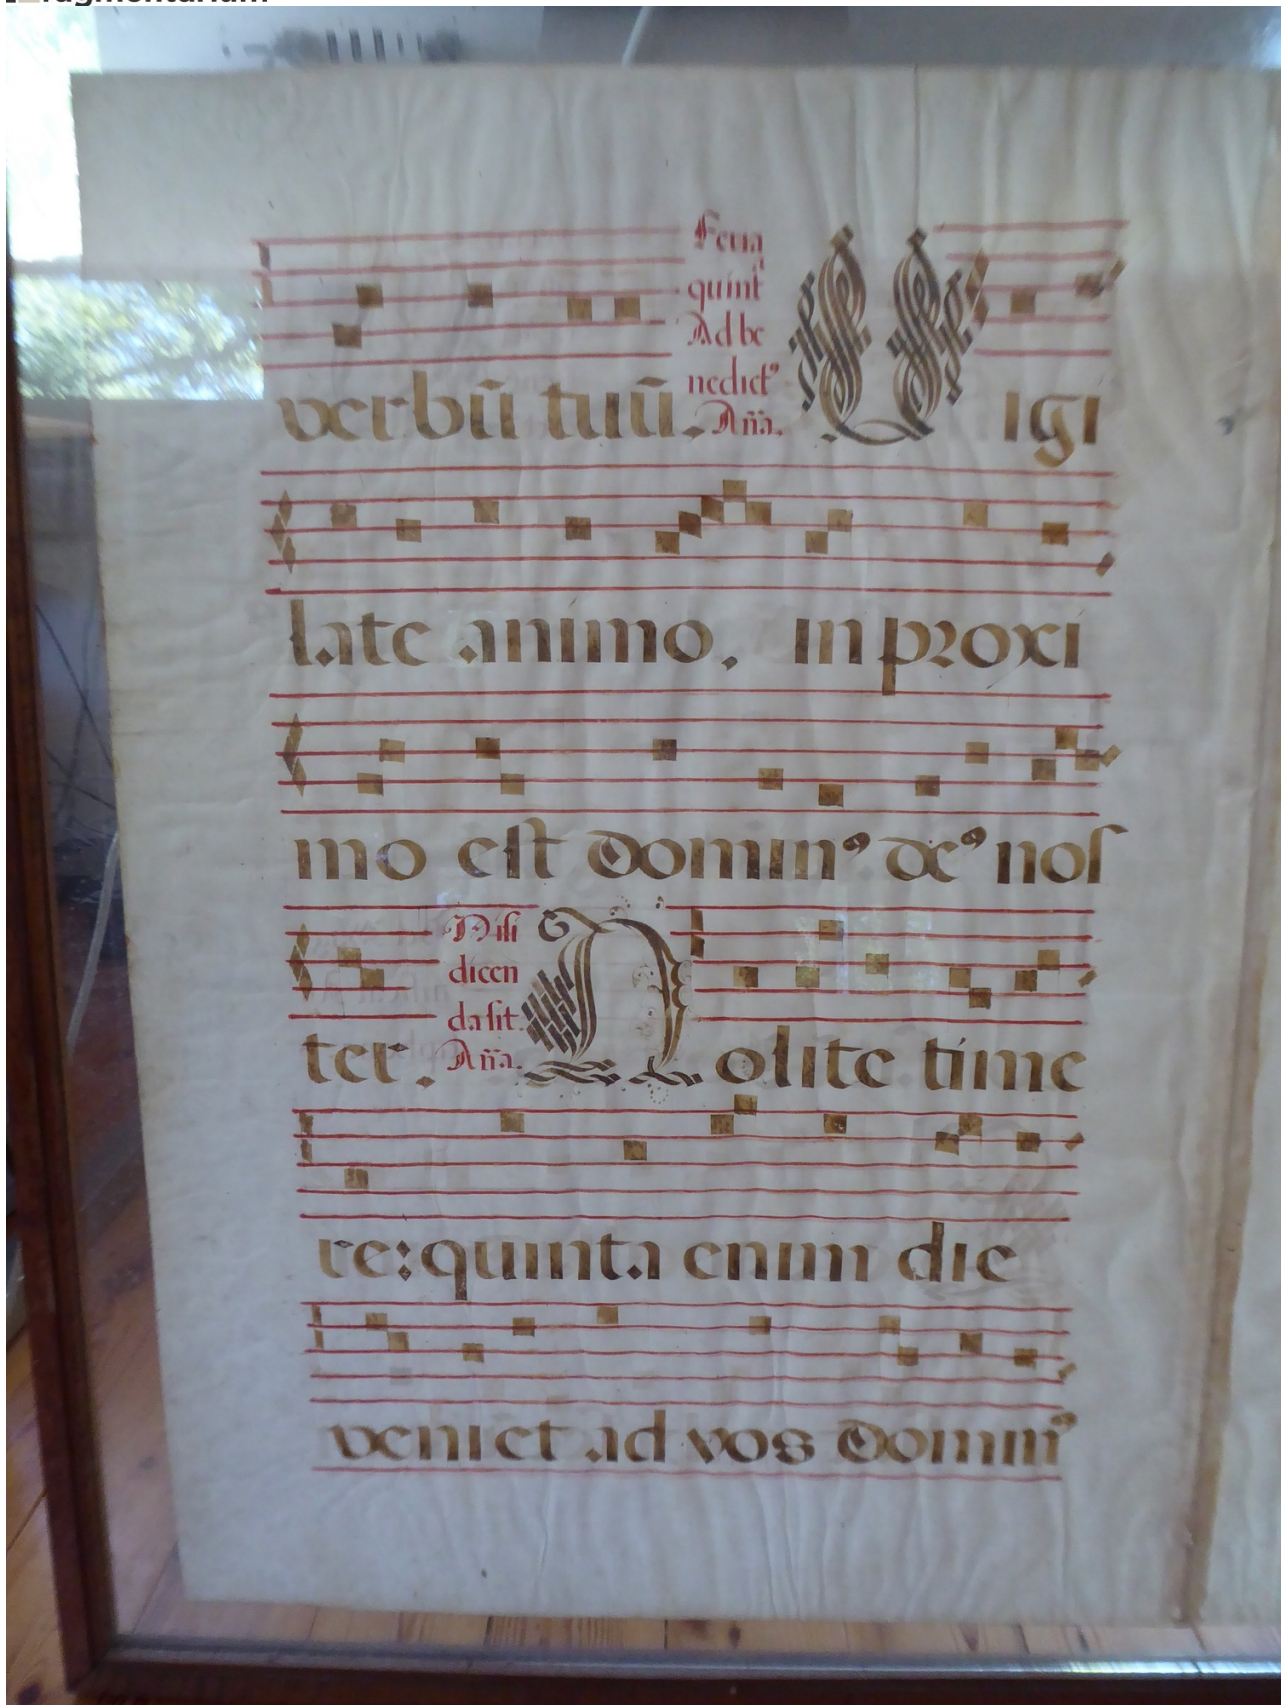 verbū tuū. Feria quint^a Ad be nedict⁹ Aña. Vigi
late animo, in proxi
mo est domin⁹ de⁹ nos
ter. Nisi dicen da sit. Aña. Nolite time
re: quinta enim die
veniet ad vos domin⁹